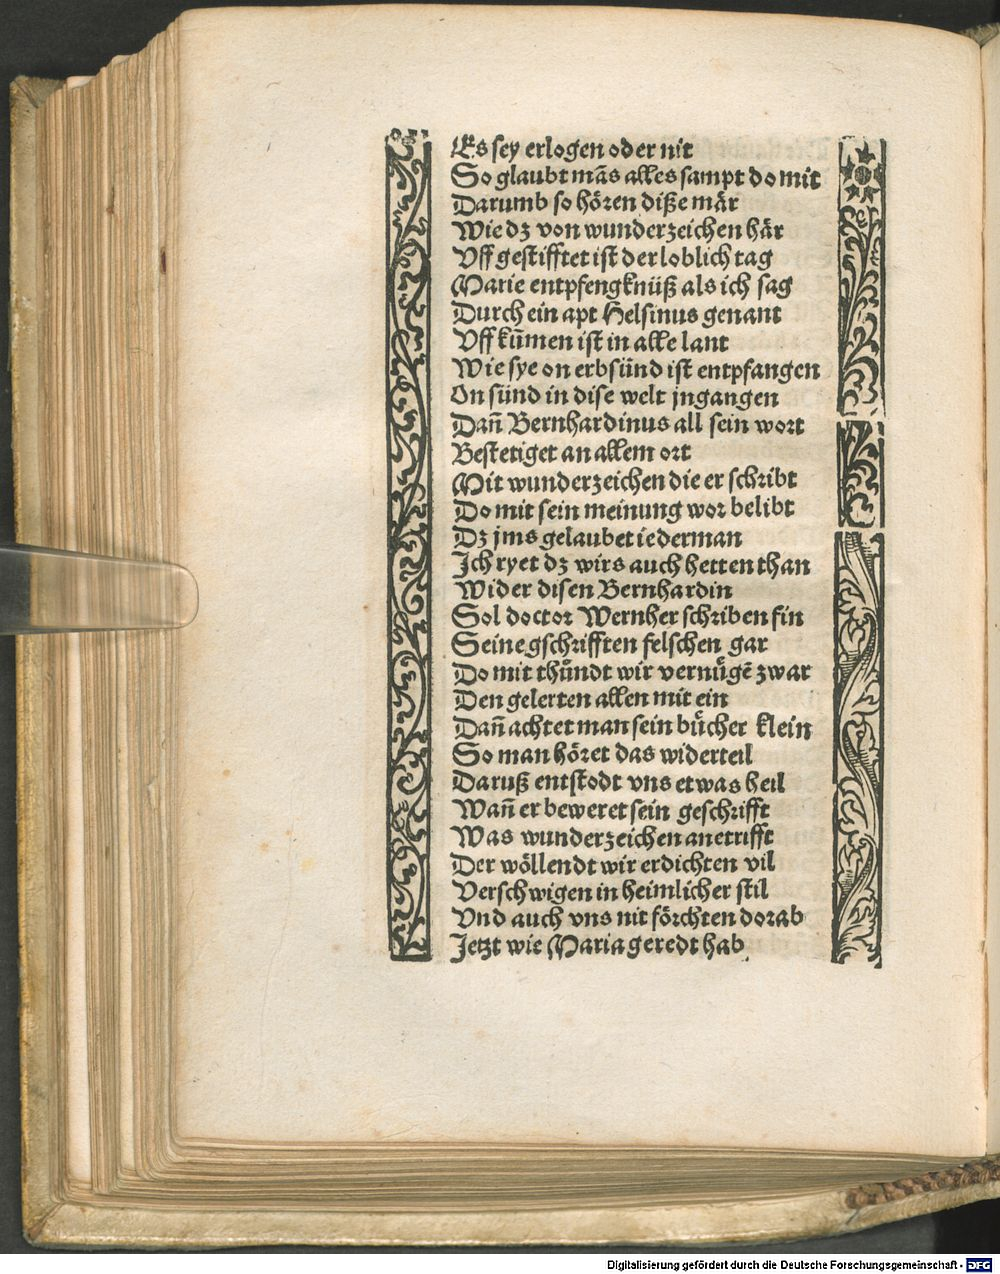 Es sey erlogen oder nit
So glaubt mãs alles sampt do mit
Darumb so hören diße mär
Wie dz von wunderzeichen här
Vff gestifftet ist der loblich tag
Marie entpfengknüß als ich sag
Durch ein apt Helsinus genant
Vff kũmen ist in alle lant
Wie sye on erbsünd ist entpfangen
On sünd in dise welt jngangen
Dañ Bernhardinus all sein wort
Bestetiget an allem ort
Mit wunderzeichen die er schribt
Do mit sein meinung wor belibt
Dz jms gelaubet iederman
Ich ryet dz wirs auch hetten than
Wider disen Bernhardin
Sol doctor Wernher schriben fin
Seine gschrifften felschen gar
Do mit thůndt wir vernůgẽ zwar
Den gelerten allen mit ein
Dañ achtet man sein bücher klein
So man höret das widerteil
Daruß entstodt vns etwas heil
Wañ er beweret sein geschrifft
Was wunderzeichen anetrifft
Der wöllendt wir erdichten vil
Verschwigen in heimlicher stil
Vnd auch vns nit förchten dorab
Jetzt wie Maria geredt hab
Digitalisierung gefördert durch die Deutsche Forschungsgemeinschaft - DFG